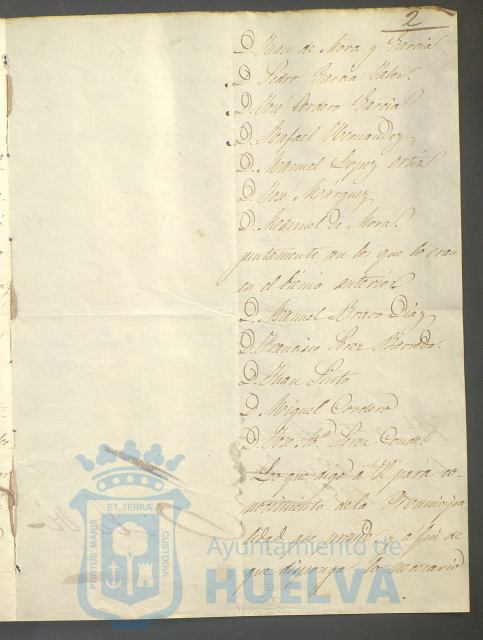 2
D. Juan de Mora y Garcia
D. Pedro Garcia
D. José Cordero Garcia
D. Rafael Hernandez
D. Manuel Lopez Ortiz
D. José Marquez
D. Manuel de Mora.
juntamente con los que lo eran
en el bienio anterior
D. Manuel Bravo Diaz
D. Francisco Perez Barreda.
D. Juan Pinto
D. Miguel Cordero
D. José Mª Perez Conde
Lo que digo a V. para co-
nocimiento de la Municipa
lidad que preside y a fin de
que disponga lo necesario
PORTUS MARIS ET TERRÆ CUSTODIA
Ayuntamiento de
HUELVA